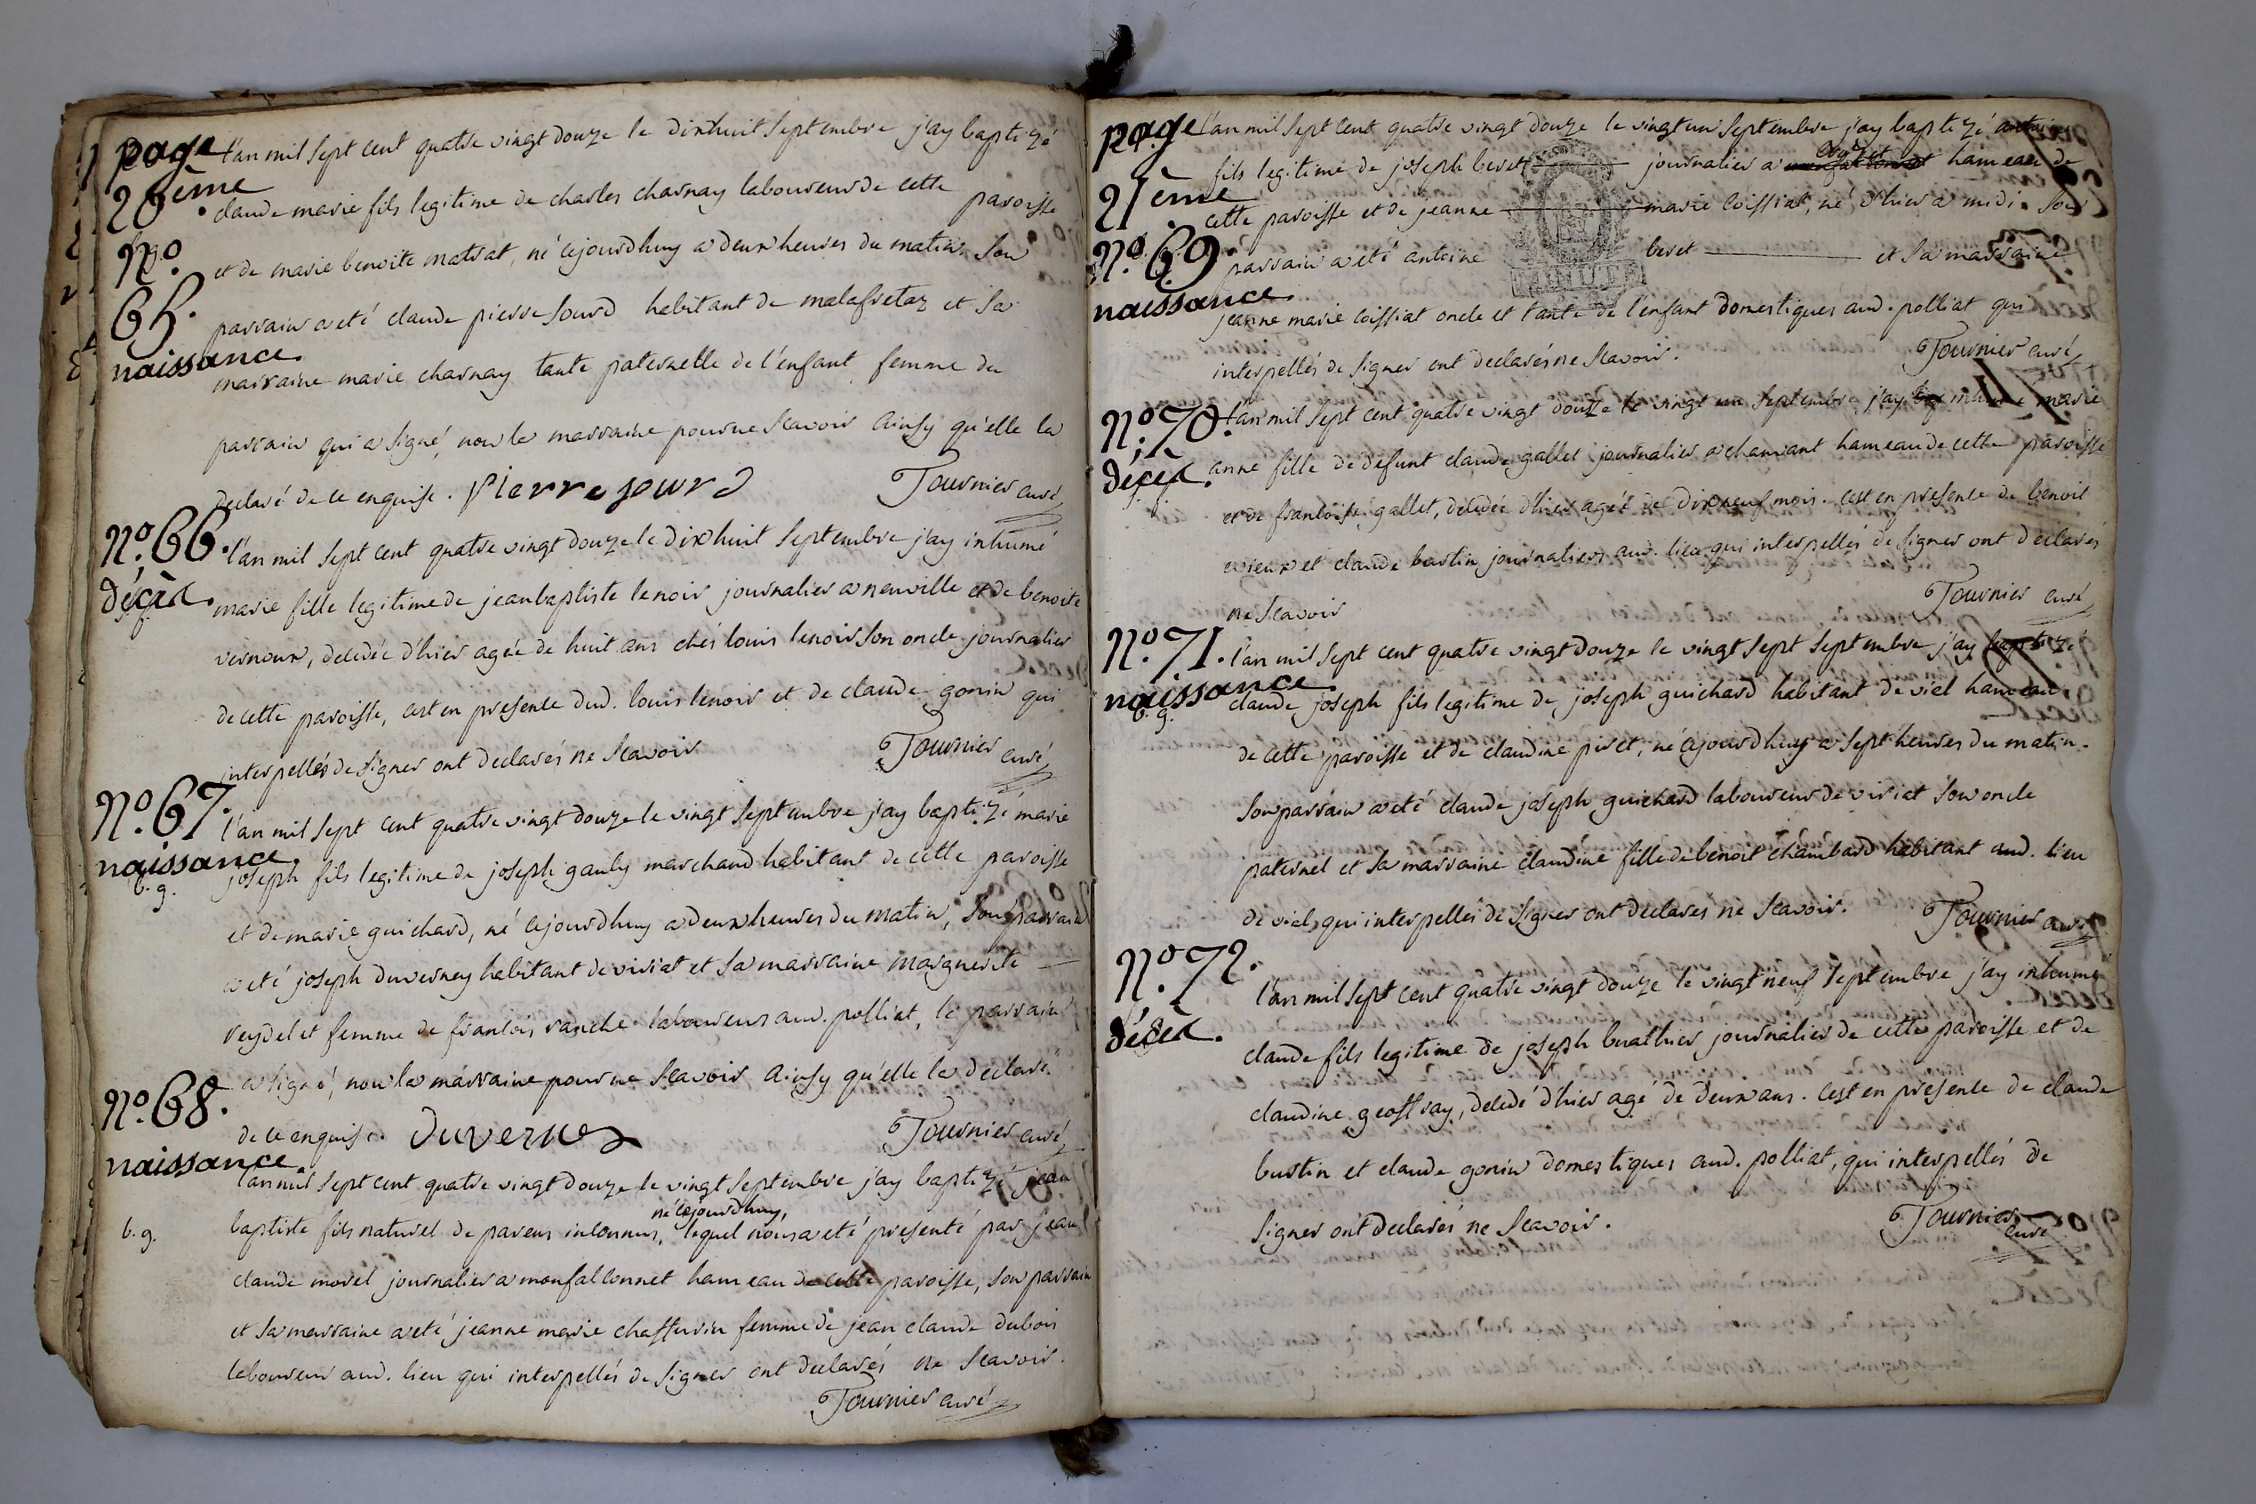 page
20ème
No.
65.
naissance.
l'an mil sept cent quatre vingt douze le dixhuit septembre j'ay baptizé
claude marie fils legitime de charles charnay laboureur de cette paroisse
et de marie benoite matrat, né cejourdhuy a deux heures du matin. Son
parrain a eté claude pierre sourd habitant de malafretaz et sa
marraine marie charnay tante paternelle de l'enfant femme du
parrain qui a signé, non la marraine pour ne scavoir ainsy qu'elle la
declaré de ce enquise. Pierre sourd Tournier curé
No. 66.
décèd.
l'an mil sept cent quatre vingt douze le dixhuit septembre j'ay inhumé
marie fille legitime de jean baptiste lenoir journalier a neuville et de benoite
vernoux, decedée d'hier agée de huit ans chés louis lenoir son oncle journalier
de cette paroisse, cest en presence dud. louis lenoir et de claude gonin qui
interpellés de signer ont declarés ne scavoir Tournier curé
No. 67.
naissance.
b. g.
l'an mil sept cent quatre vingt douze le vingt septembre j'ay baptizé marie
joseph fils legitime de joseph gauly marchand habitant de cette paroisse
et de marie guichard, né cejourdhuy a deux heures du matin, son parrain
a eté joseph duverney habitant de viriat et sa marraine marguerite
reydelet femme de francois ranche laboureur aud. polliat, le parrain
a signé, non la marraine pour ne scavoir ainsy qu'elle la declaré
de ce enquise. Duverney Tournier curé
No. 68.
naissance.
b. g.
l'an mil sept cent quatre vingt douze le vingt septembre j'ay baptizé jean
né cejourdhuy,
baptiste fils naturel de parens inconnus, lequel nous a eté presenté par jean
claude morel journalier a monfalconnet hameau de cette paroisse, son parrain
et sa marraine a eté jeanne marie chaffurin femme de jean claude dubois
laboureur aud. lieu qui interpellés de signer ont declarés ne scavoir.
Tournier curé
page
21ème
No. 69.
naissance.
l'an mil sept cent quatre vingt douze le vingt un septembre j'ay baptizé antoine
fils legitime de joseph beret journalier a hameau de
cette paroisse et de jeanne marie coissiat, né d'hier a midi. Son
parrain a eté antoine beret et sa marraine
MINUTE
jeanne marie coissiat oncle et tante de l'enfant domestiques aud. polliat qui
interpellés de signer ont declarés ne scavoir. Tournier curé
No. 70.
décéd.
l'an mil sept cent quatre vingt douze le vingt un septembre j'ay inhumé marie
anne fille de defunt claude gallet journalier a chamant hameau de cette paroisse
et de francoise gallet, decedée d'hier agée de dixneuf mois. cest en presence de benoit
vieux et claude bustin journaliers aud. lieu qui interpellés de signer ont declarés
ne scavoir Tournier curé
No. 71.
naissance.
b. g.
l'an mil sept cent quatre vingt douze le vingt sept septembre j'ay baptizé
claude joseph fils legitime de joseph guichard habitant de viel hameau
de cette paroisse et de claudine piret, né cejourdhuy a sept heures du matin.
son parrain a eté claude joseph guichard laboureur de viriat son oncle
paternel et sa marraine claudine fille de benoit chambard habitant aud. lieu
de viel, qui interpellés de signer ont declarés ne scavoir. Tournier curé
No. 72.
décéd.
l'an mil sept cent quatre vingt douze le vingt neuf septembre j'ay inhumé
claude fils legitime de joseph buathier journalier de cette paroisse et de
claudine geoffray, decedé d'hier agé de deux ans. cest en presence de claude
bustin et claude gonin domestiques aud. polliat, qui interpellés de
signer ont declarés ne scavoir. Tournier
curé